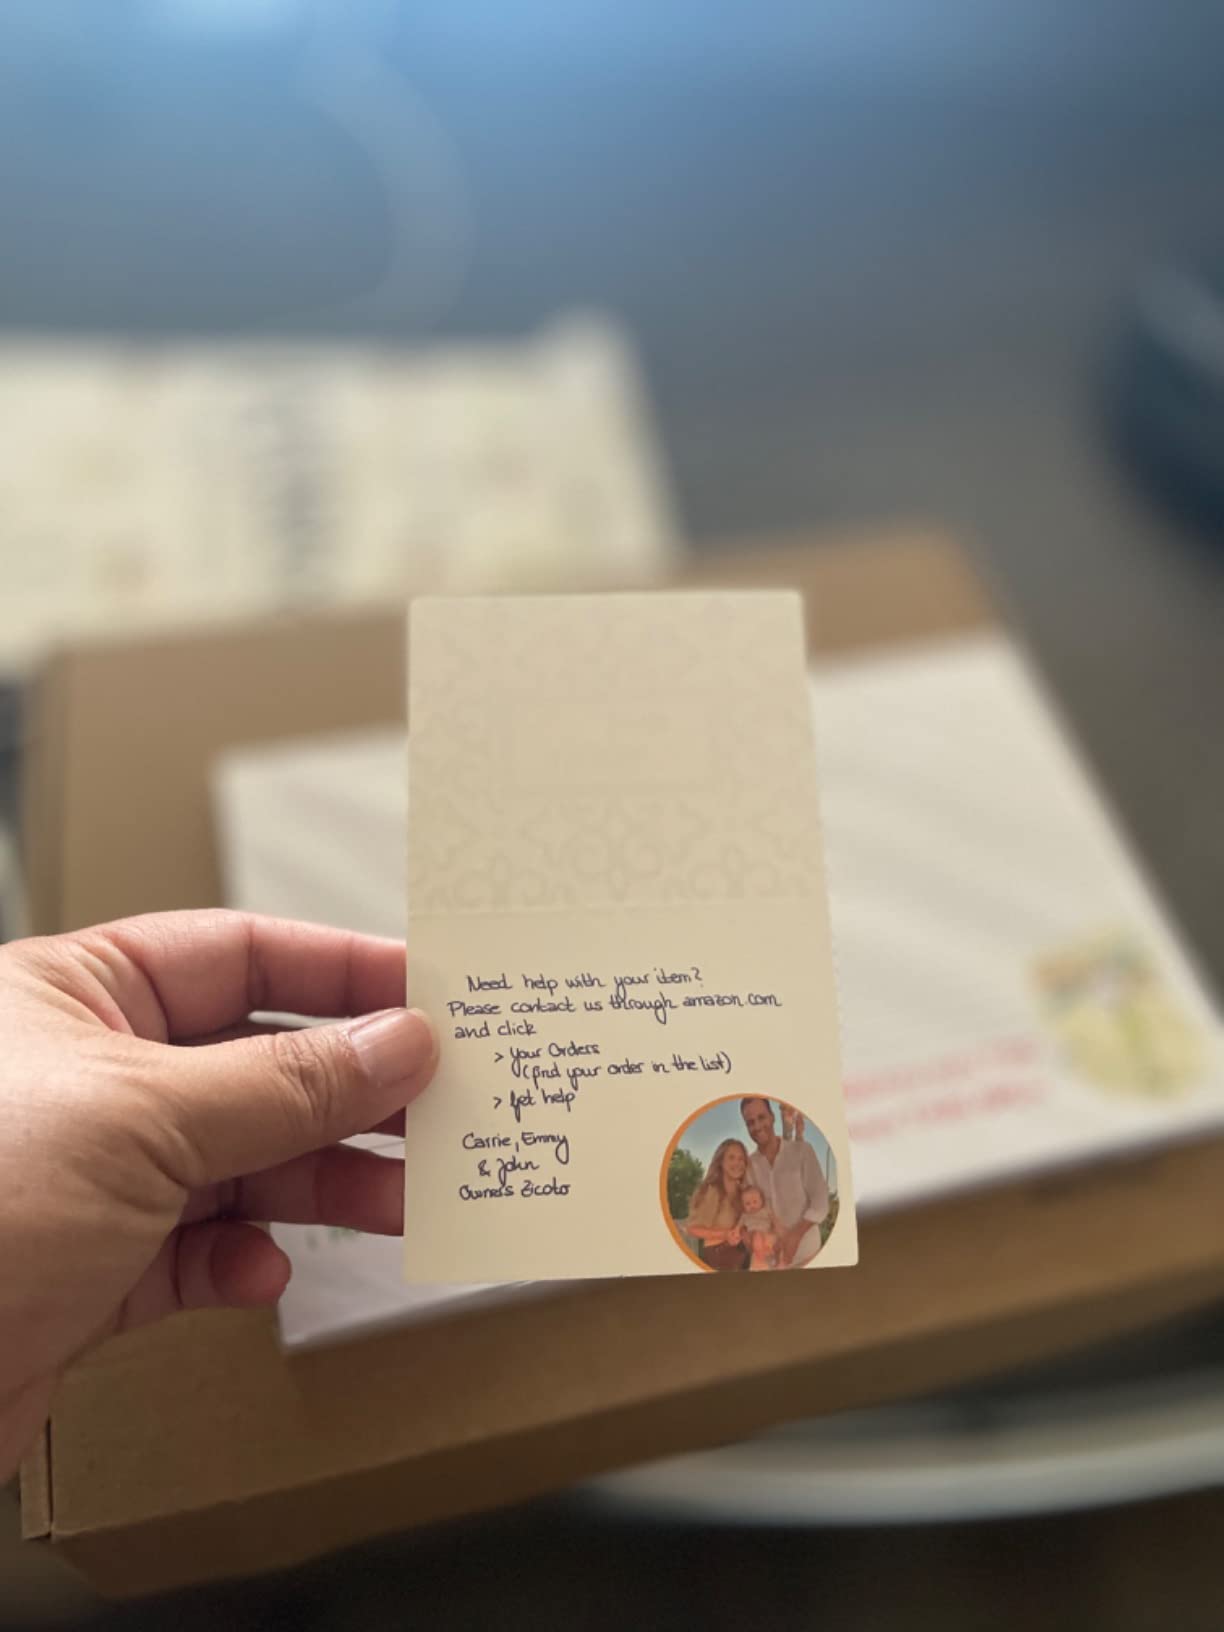 Need help with your item?
Please contact us through amazon.com
and click
> Your Orders
(find your order in the list)
> Get help
Carrie, Emmy
& John
Owners Zicoto